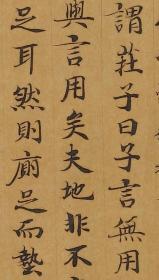 謂莊子曰子言無用
與言用矣夫地非不
足耳然則廁足而墊